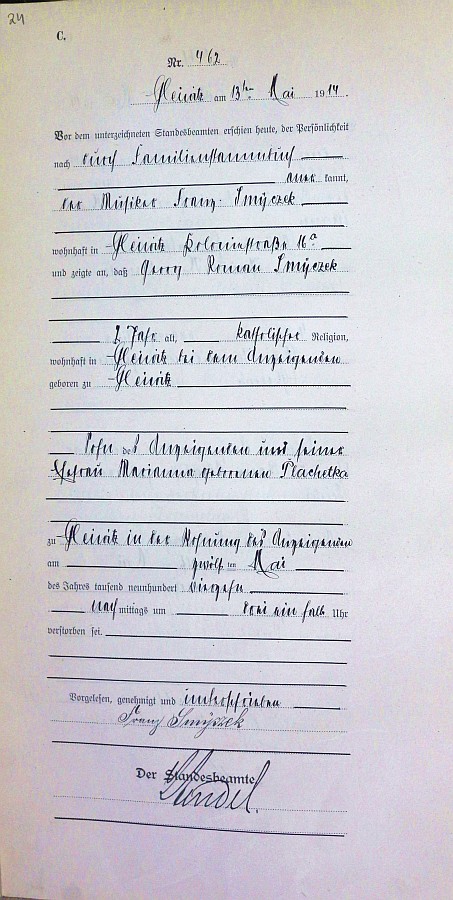 24
C.
Nr. 462
Gleiwitz am 13ten Mai 1914.
Vor dem unterzeichneten Standesbeamten erschien heute, der Persönlichkeit
nach durch Familienstammbuch
aner kannt,
der Musiker Franz Smÿczek
wohnhaft in Gleiwitz 16a
und zeigte an, daß Georg Roman Smÿczek
Jahr alt, katholischer Religion,
wohnhaft in Gleiwitz bei dem Anzeigenden
geboren zu Gleiwitz
Sohn des Anzeigenden und seiner
Ehefrau Marianna geborenen Plachetka
zu Gleiwitz in der Wohnung des Anzeigenden
am zwölf ten Mai
des Jahres tausend neunhundert vierzehn
nach mittags um drei ein halb Uhr
verstorben sei.
Vorgelesen, genehmigt und unterschrieben
Franz Smÿczek
Der Standesbeamte